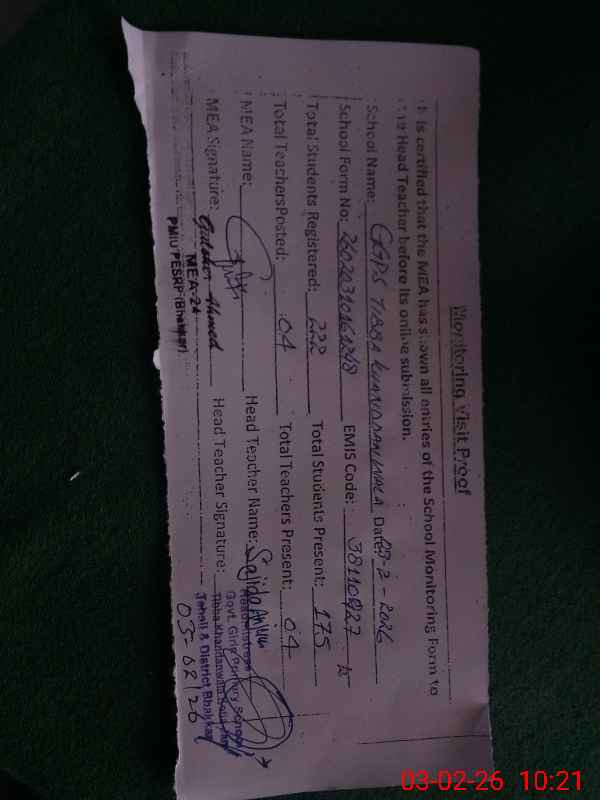 Monitoring Visit Proof
It is certified that the MEA has shown all entries of the School Monitoring Form to
the Head Teacher before its online submission.
School Name: GGPS TIBBA KHANDDANWALA Date: 03-2-2026
School Form No: EMIS Code: 38110927
Total Students Registered: Total Students Present: 175
Total TeachersPosted: 04 Total Teachers Present: 04
MEA Name: Head Teacher Name: Sajida
MEA Signature: Gulsher Ahmed Head Teacher Signature:
MEA-24
PMIU PESRP (Bhakkar)
Headmistress
Govt. Girls Primary School
Tibba Khandanwala
Tehsil & District Bhakkar
03-02/26
03-02-26 10:21